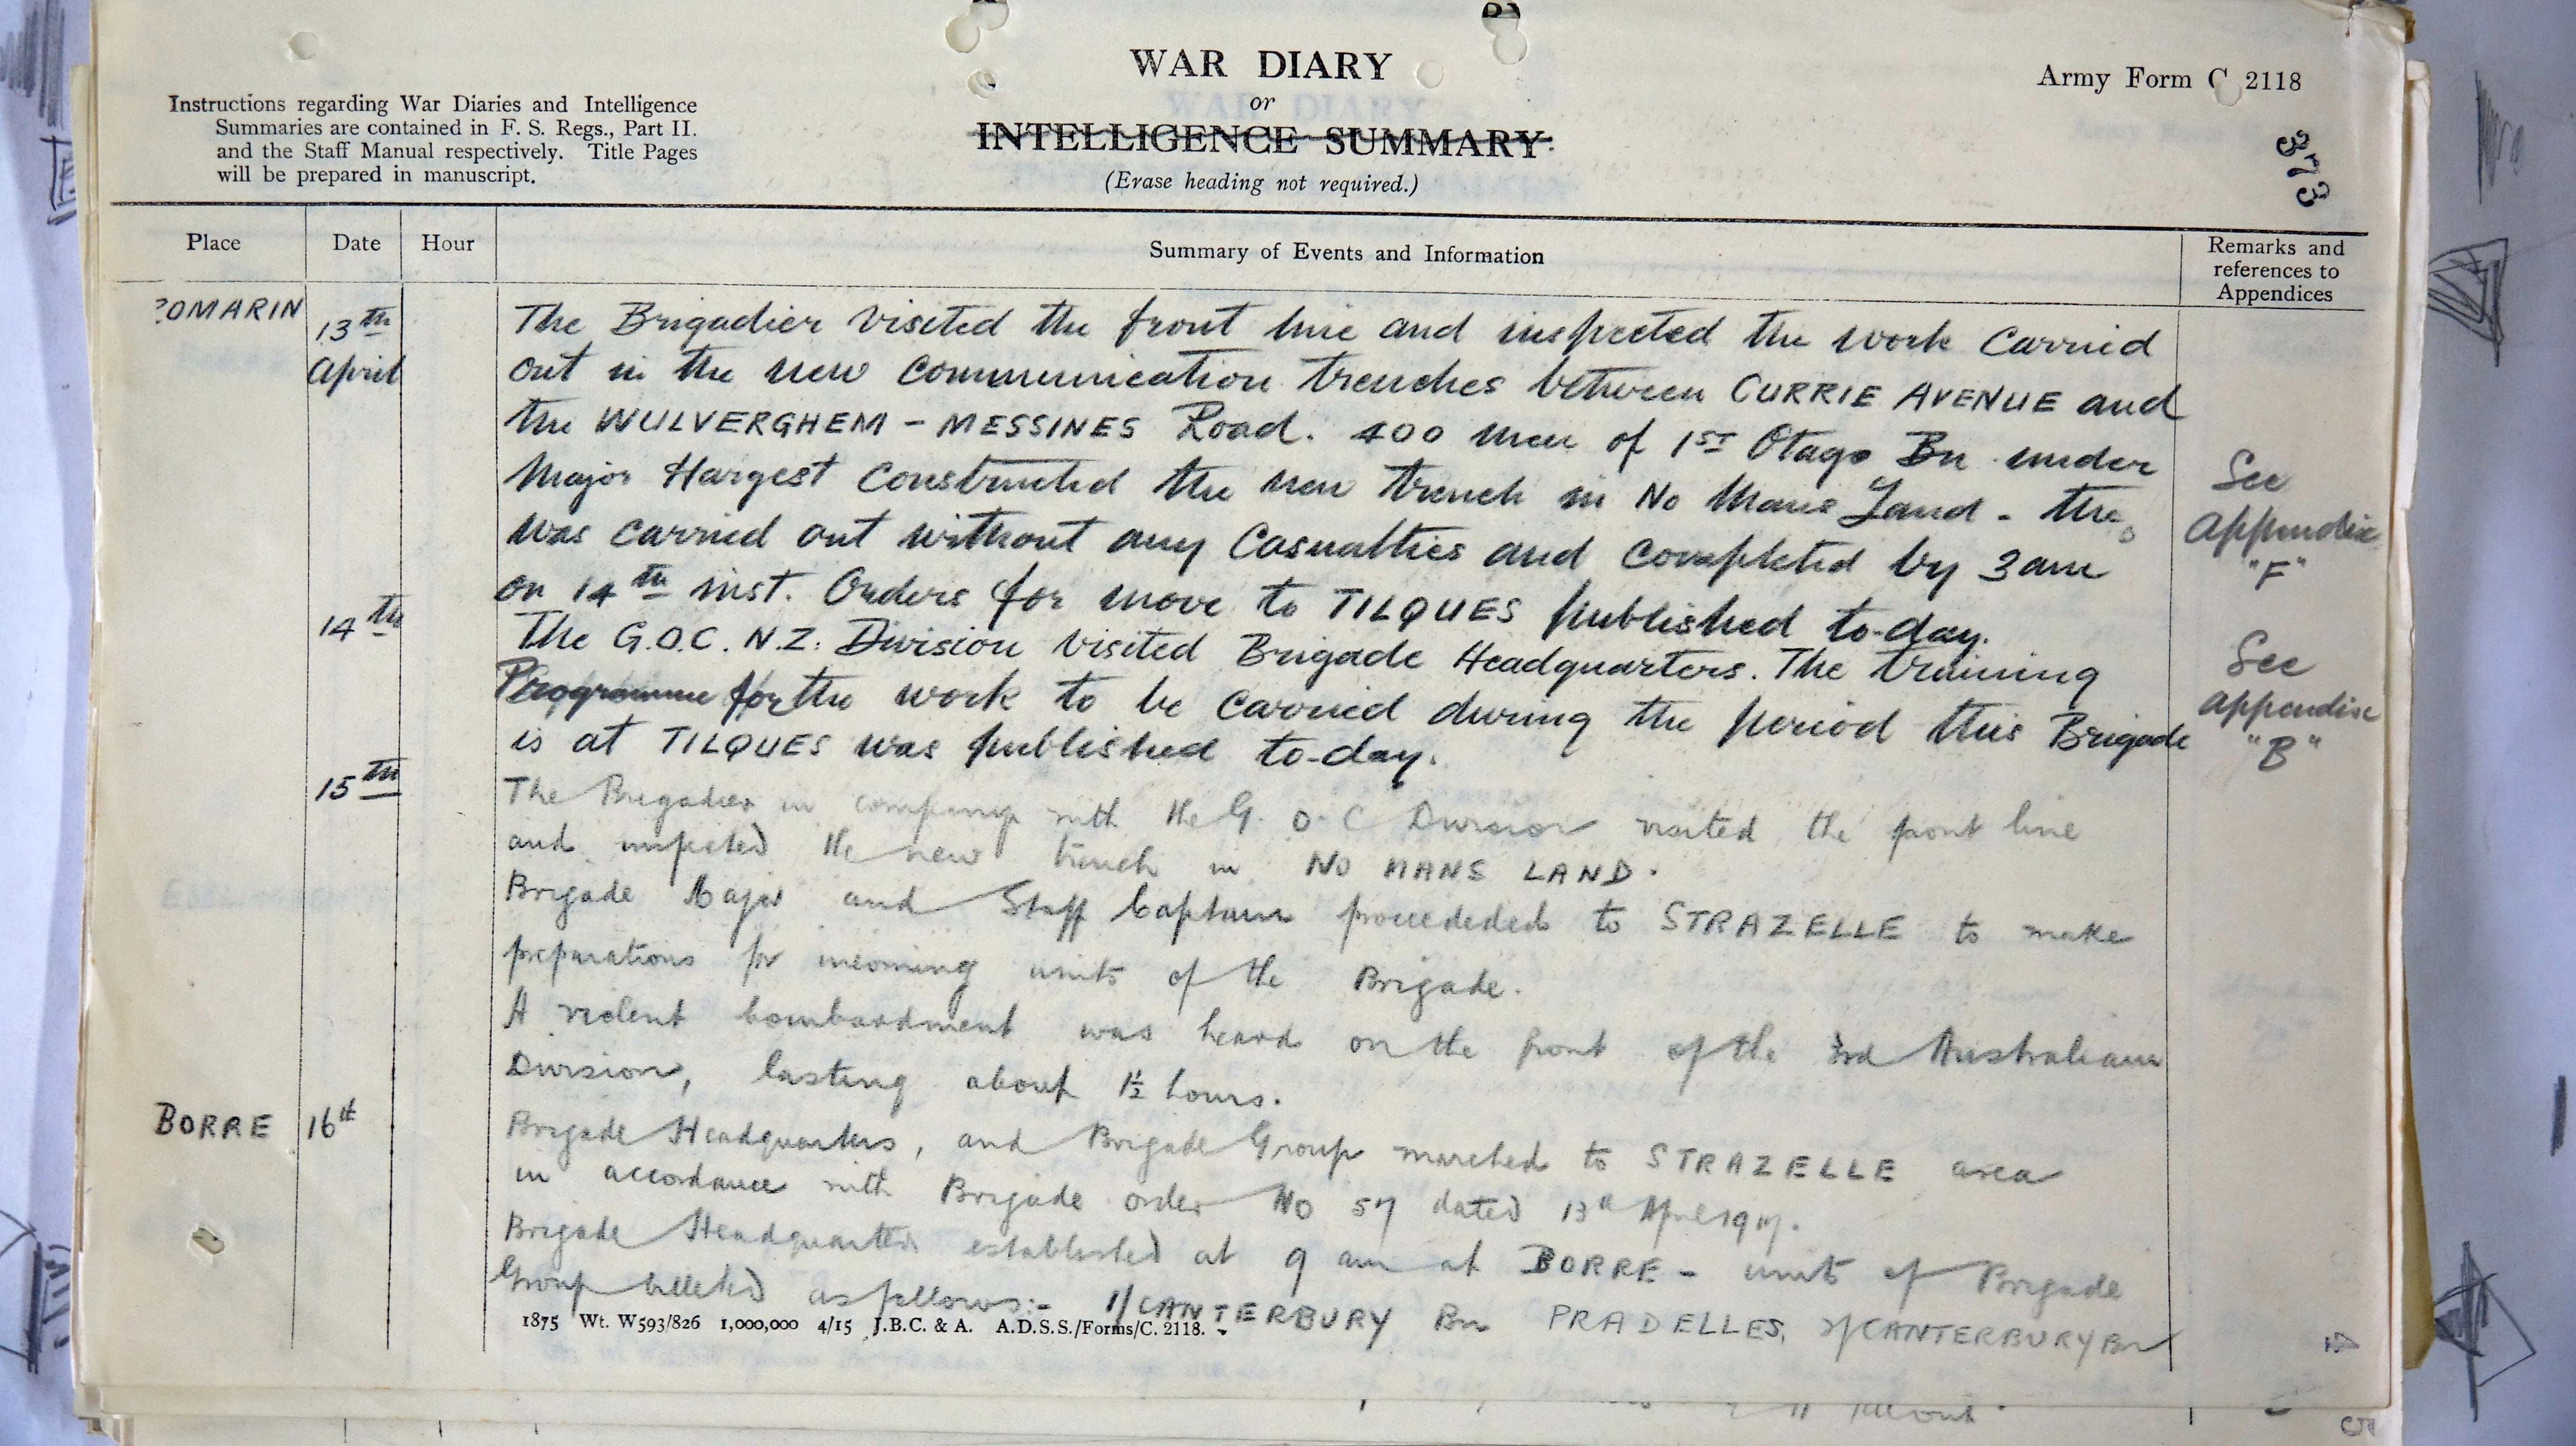 WAR DIARY
or
INTELLIGENCE SUMMARY.
(Erase heading not required.)
Army Form C 2118
Instructions regarding War Diaries and Intelligence
Summaries are contained in F. S. Regs., Part II.
and the Staff Manual respectively. Title Pages
will be prepared in manuscript.
373
Place Date Hour Summary of Events and Information Remarks and references to Appendices
OMARIN 13th April
The Brigadier visited the front line and inspected the work carried
out in the new communication trenches between CURRIE AVENUE and
the WULVERGHEM - MESSINES Road. 400 men of 1ST Otago Bn under
Major Hargest constructed the new trench in No Mans Land - this
was carried out without any casualties and completed by 3am
on 14th inst. Orders for move to TILQUES published to-day.
See
Appendix
"F"
14th The G.O.C. N.Z. Division visited Brigade Headquarters. The training
Programme for the work to be carried during the period this Brigade
is at TILQUES was published to-day.
See
Appendix
"B"
15th The Brigadier in company with the G.O.C Division visited the front line
and inspected the new trench in NO MANS LAND.
Brigade Major and Staff Captain proceeded to STRAZELLE to make
preparations for incoming units of the Brigade.
A violent bombardment was heard on the front of the 3rd Australian
Division, lasting about 1½ hours.
BORRE 16th Brigade Headquarters, and Brigade Group marched to STRAZELLE area
in accordance with Brigade order No 57 dated 13th April 1917.
Brigade Headquarters established at 9 am at BORRE - units of Brigade
Group billeted as follows:- 1/CANTERBURY Bn PRADELLES, 2/CANTERBURY Bn
1875 Wt. W593/826 1,000,000 4/15 J.B.C. & A. A.D.S.S./Forms/C. 2118.